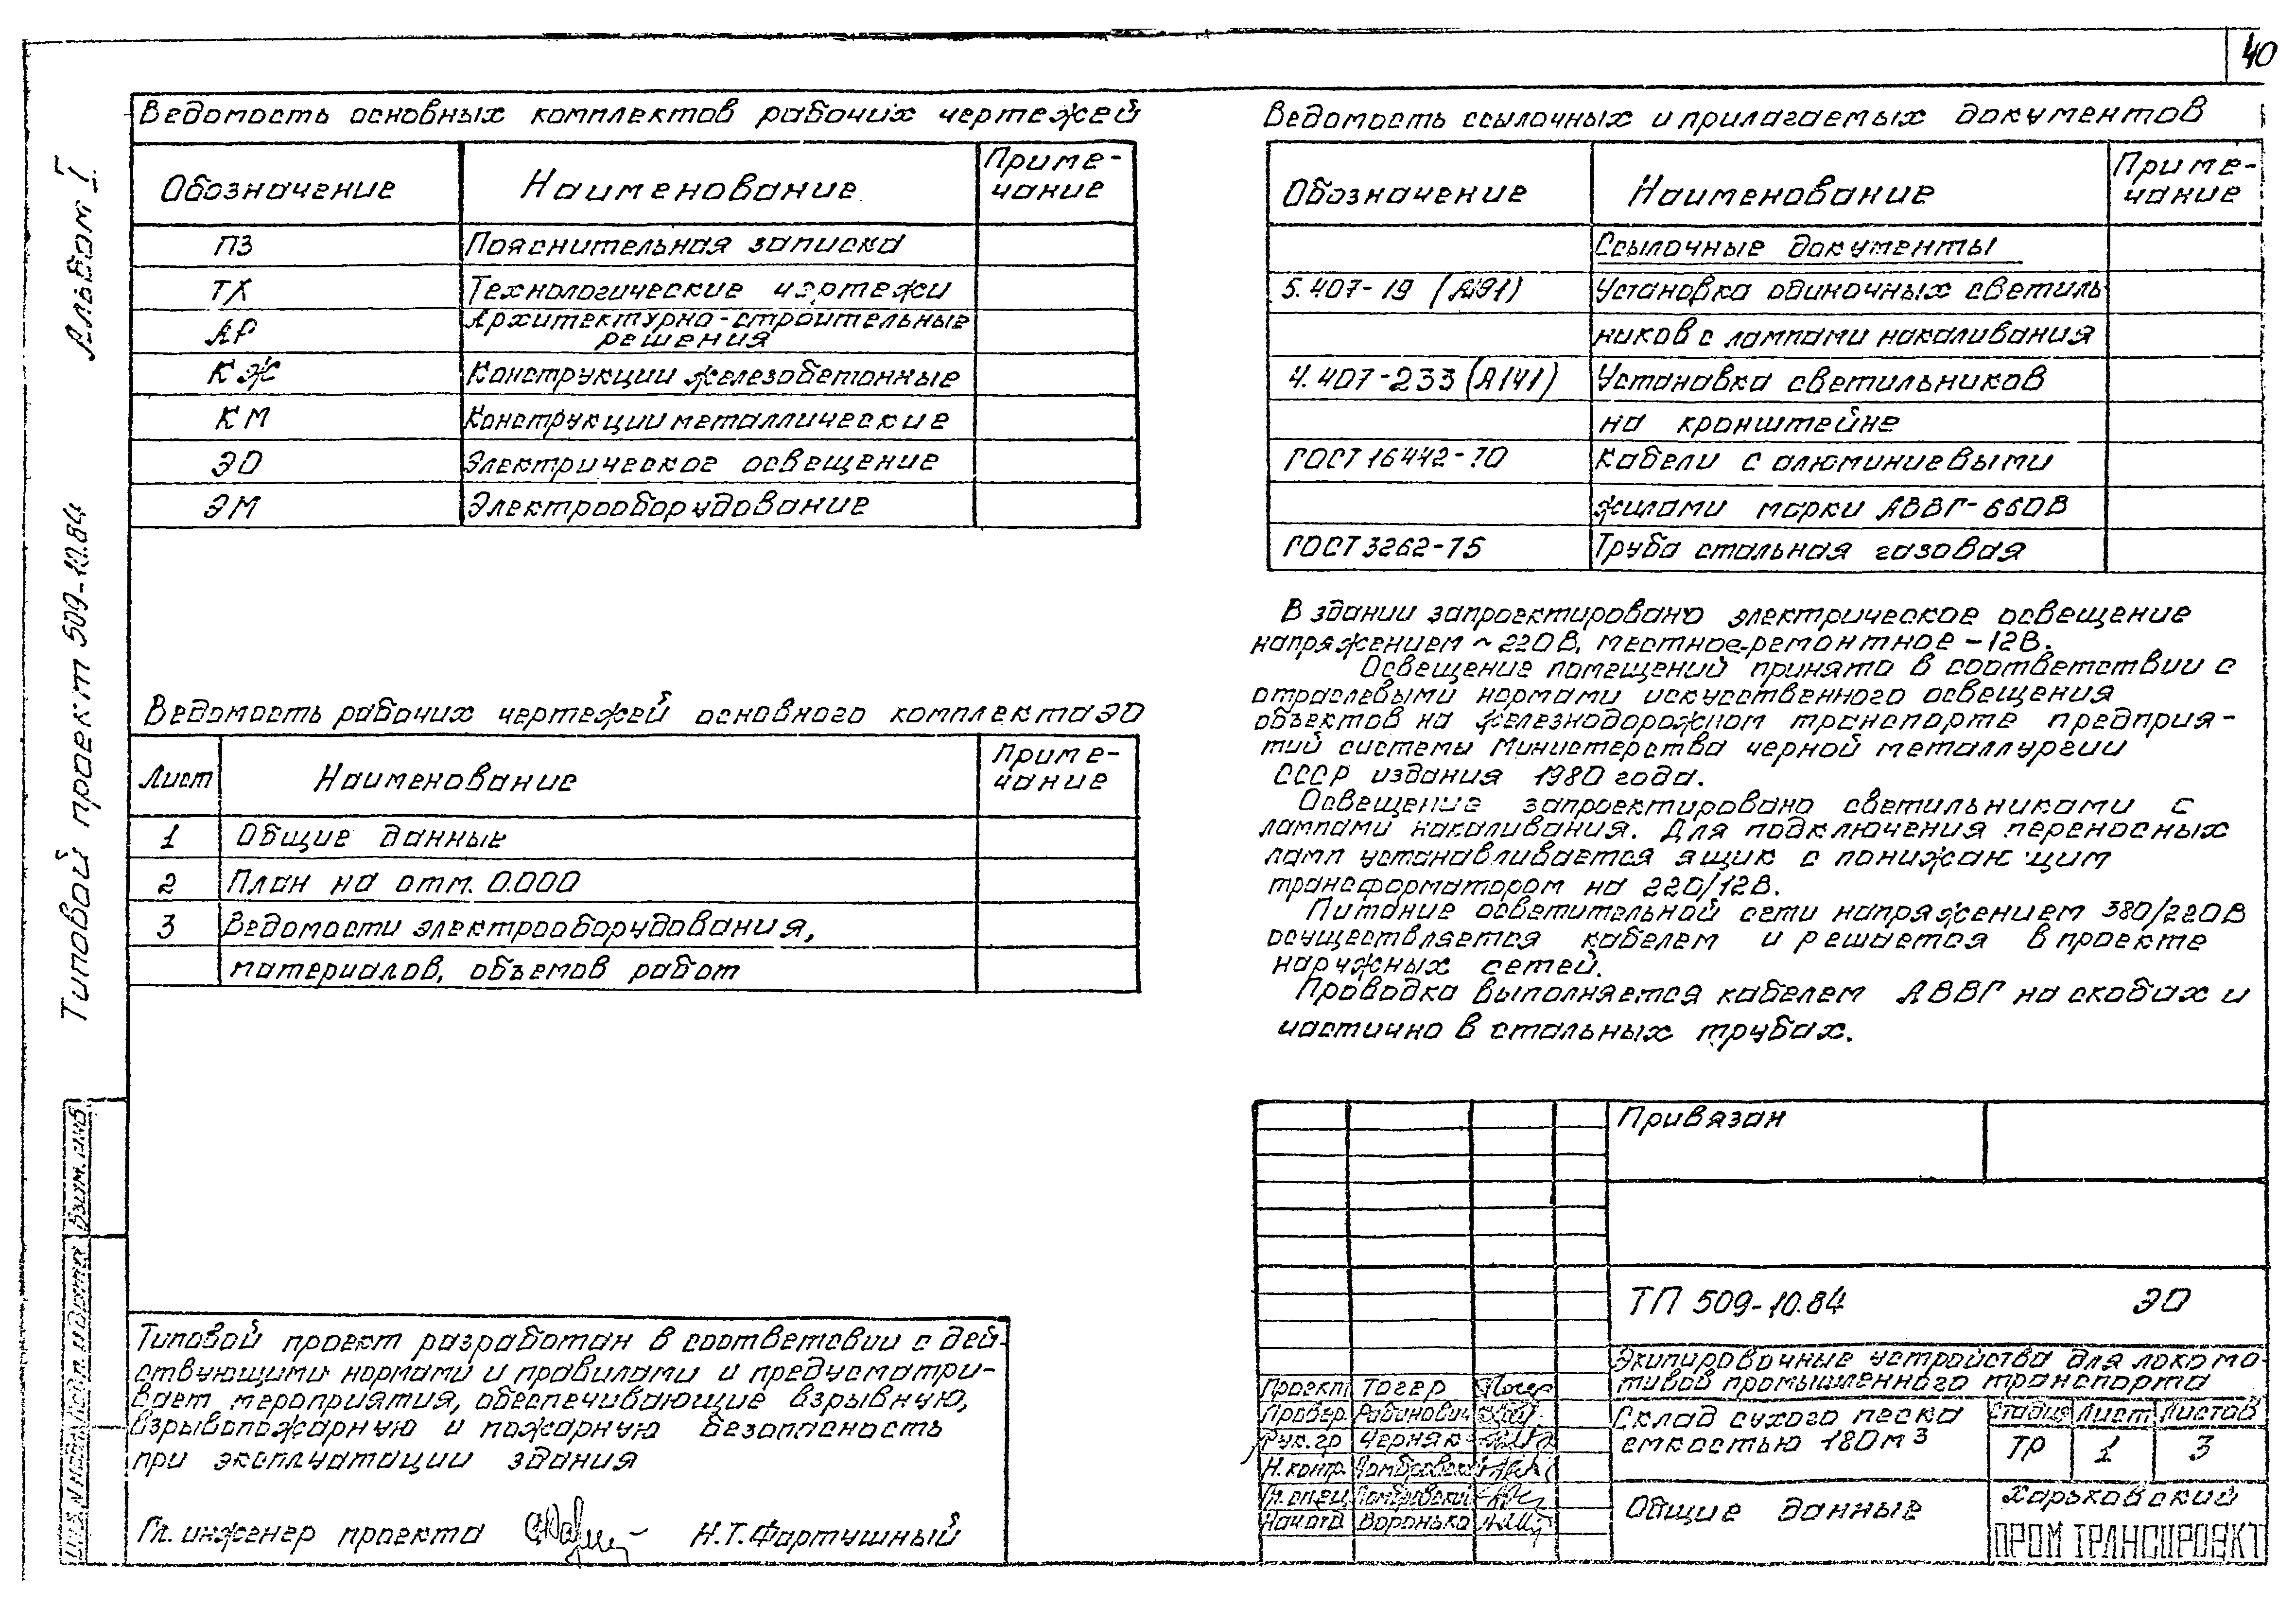 40
Альбом I
Типовой проект 509-10.84
Ведомость основных комплектов рабочих чертежей
Обозначение Наименование Приме-
чание
ПЗ Пояснительная записка
ТХ Технологические чертежи
АР Архитектурно-строительные
решения
КЖ Конструкции железобетонные
КМ Конструкции металлические
ЭО Электрическое освещение
ЭМ Электрооборудование
Ведомость рабочих чертежей основного комплекта ЭО
Лист Наименование Приме-
чание
1 Общие данные
2 План на отм. 0.000
3 Ведомости электрооборудования,
материалов, объемов работ
Типовой проект разработан в соответсвии с дей-
ствующими нормами и правилами и предусматри-
вает мероприятия, обеспечивающие взрывную,
взрывопожарную и пожарную безопасность
при эксплуатации здания
Гл. инженер проекта Н.Т.Фартушный
Ведомость ссылочных и прилагаемых документов
Обозначение Наименование Приме-
чание
Ссылочные документы
5.407-19 (А91) Установка одиночных светиль
ников с лампами накаливания
4.407-233 (А141) Установка светильников
на кронштейне
ГОСТ 16442-70 Кабели с алюминиевыми
жилами марки АВВГ-660В
ГОСТ 3262-75 Труба стальная газовая
В здании запроектировано электрическое освещение
напряжением ~220В, местное-ремонтное -12В.
Освещение помещений принято в соответствии с
отраслевыми нормами искусственного освещения
объектов на железнодорожном транспорте предприя-
тий системы Министерства черной металлургии
СССР издания 1980 года.
Освещение запроектировано светильниками с
лампами накаливания. Для подключения переносных
ламп устанавливается ящик с понижающим
трансформатором на 220/12В.
Питание осветительной сети напряжением 380/220В
осуществляется кабелем и решается в проекте
наружных сетей.
Проводка выполняется кабелем АВВГ на скобах и
частично в стальных трубах.
Привязан
ТП 509-10.84 ЭО
Экипировочные устройства для локомо-
тивов промышленного транспорта
Проект Тогер
Провер. Рабинович
Рук.гр Черняк
Н.контр. Домбровский
Гл.спец Домбровский
Начотд Воронько
Склад сухого песка
емкостью 180м³
Стадия Лист Листов
ТР 1 3
Общие данные
Харьковский
ПРОМТРАНСПРОЕКТ
Взам. инв.